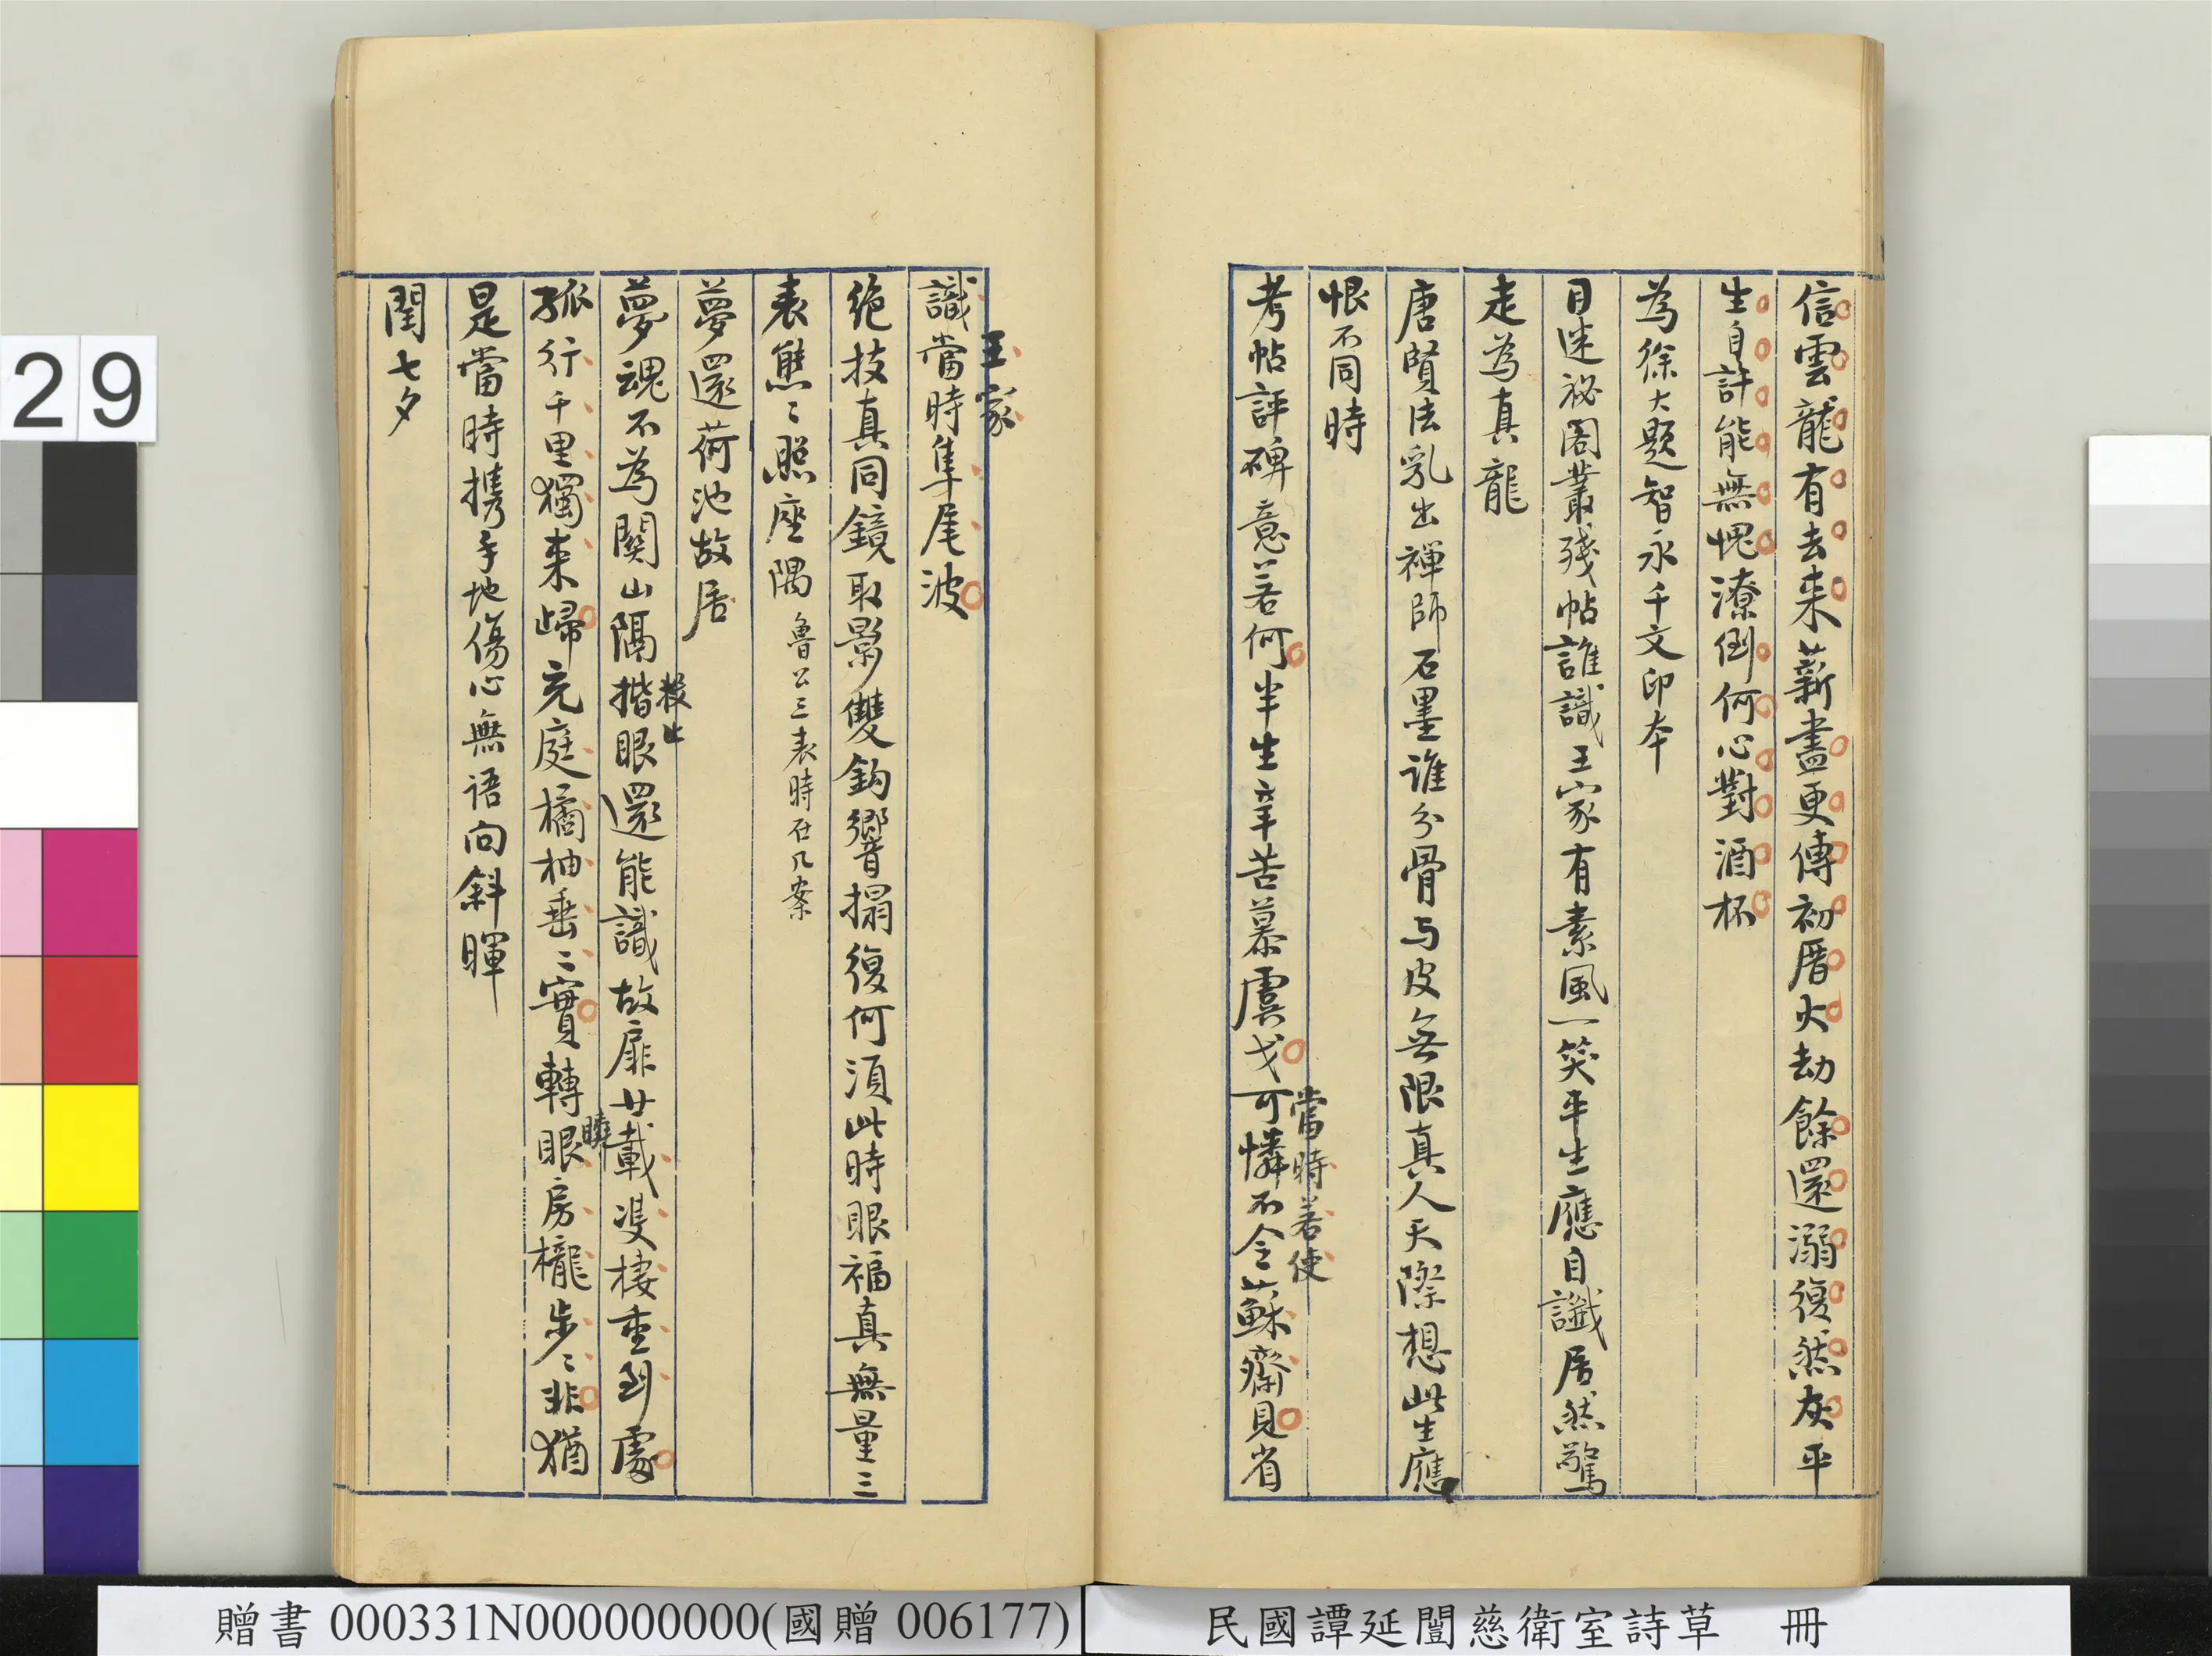 信雲龍有去来薪盡更傳初厝火劫餘還溺復然灰平
生自許能無愧潦倒何心對酒杯
為徐大題智永千文印本
目迷祕閣叢殘帖誰識王家有素風一笑平生應自讖居然驚
走為真龍
唐賢法乳出禪師石墨誰分骨与皮無限真人天際想此生應
恨不同時
考帖評碑意若何半生辛苦慕虞戈可憐不令蘇齋見省
當時若使
識當時隼尾波
王家
絶技真同鏡取影雙鈎響搨復何須此時眼福真無量三
表熊〻照座隅魯公三表時在几案
夢還荷池故居
夢魂不為關山隔揩眼還能識故扉廿載㕠棲重到處
孤行千里獨来歸充庭橘柚垂〻實轉眼房櫳步〻非猶
曉
是當時携手地傷心無語向斜暉
閏七夕
29
贈書 000331N000000000(國贈 006177)
民國譚延闓慈衛室詩草 冊